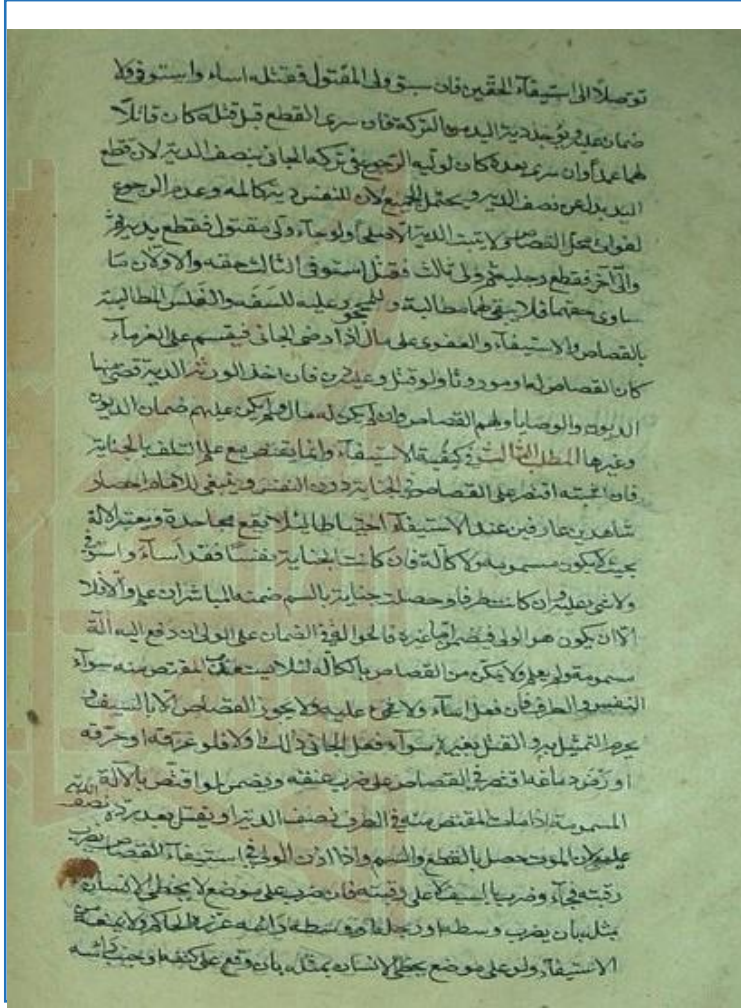 توصلاً الى استيفآء الحقين فان سبق ولى المقتول فقتله اساء واستوفى ولا
ضمان عليه ويؤخذ دية اليد من التركة فان سرى القطع قبل قتله كان قاتلاً
لهما عمداً وان سرى بعده كان لوليه الرجوع فى تركة الجانى بنصف الدية لان قطع
اليد بدل عن نصف الدية ويحتمل الجميع لان للنفس دية كاملة وعدم الرجوع
لفوات محل القصاص ولا يثبت الدية الا صلحاً ولو جآء ولى مقتول فقطع يديه
وآخر فقطع رجليه ثم ولى ثالث فقتل استوفى الثالث حقه والاولان ما
ساوى حقهما فلا يبقى لهما مطالبة وللمحجور عليه للسفه والفلس المطالبة
بالقصاص والاستيفآء والعفو على مال اذا رضى الجانى فيقسم على الغرمآء
كان القصاص له او موروثا ولو قتل وعليه دين فان اخذ الورثة الدية قضى منها
الديون والوصايا ولهم القصاص وان لم يكن له مال ولم يكن عليهم ضمان الديون
وغيرها المطلب الثالث فى كيفية الاستيفآء وانما يقتص مع علم التلف بالجناية
فان اشتبه اقتصر على القصاص فى الجناية دون النفس وينبغى للامام احضار
شاهدين عارفين عند الاستيفآء احتياطا لئلا يقع مجاحدة ويعتبر الآلة
بحيث لا يكون مسمومة ولا كآلة فان كانت الجناية نفسا فقد اسآء واستوفى
ولا شئ عليه وان كانت طرفا وحصلت جناية بالسم ضمنه المباشر ان علم والا فلا
الا ان يكون هو الولى فيضمن اما غيره فالحوالة فى الضمان على الولى ان دفع اليه آلة
مسمومة ولم يعلم ولا يمكن من القصاص بالكآلة لئلا يتعذب المقتص منه سوآء
النفس والطرف فان فعل اسآء ولا شئ عليه ولا يجوز القصاص الا بالسيف و
يحرم التمثيل به والقتل بغيره سوآء فعل الجانى ذلك اولا فلو غرقه او حرقه
او رضخ دماغه اقتصر فى القصاص على ضرب عنقه ويضمن لو اقتص بالآلة
المسمومة اذا مات المقتص منه فى الطرف نصف الدية او يقتل بعد رد نصف الدية
عليه لان الموت حصل بالقطع والسم واذا اذن الولى فى استيفآء القصاص بضرب
رقبته فجآء وضرب بالسيف لا على رقبته فان ضرب على موضع لا يخطئ الانسان
بمثله بان يضرب وسطه او رجله او وسط راسه عزره الحاكم ولا يمنعه من
الاستيفآء ولو على موضع يخطئ الانسان بمثله بان وقع على كتفه او جنب راسه